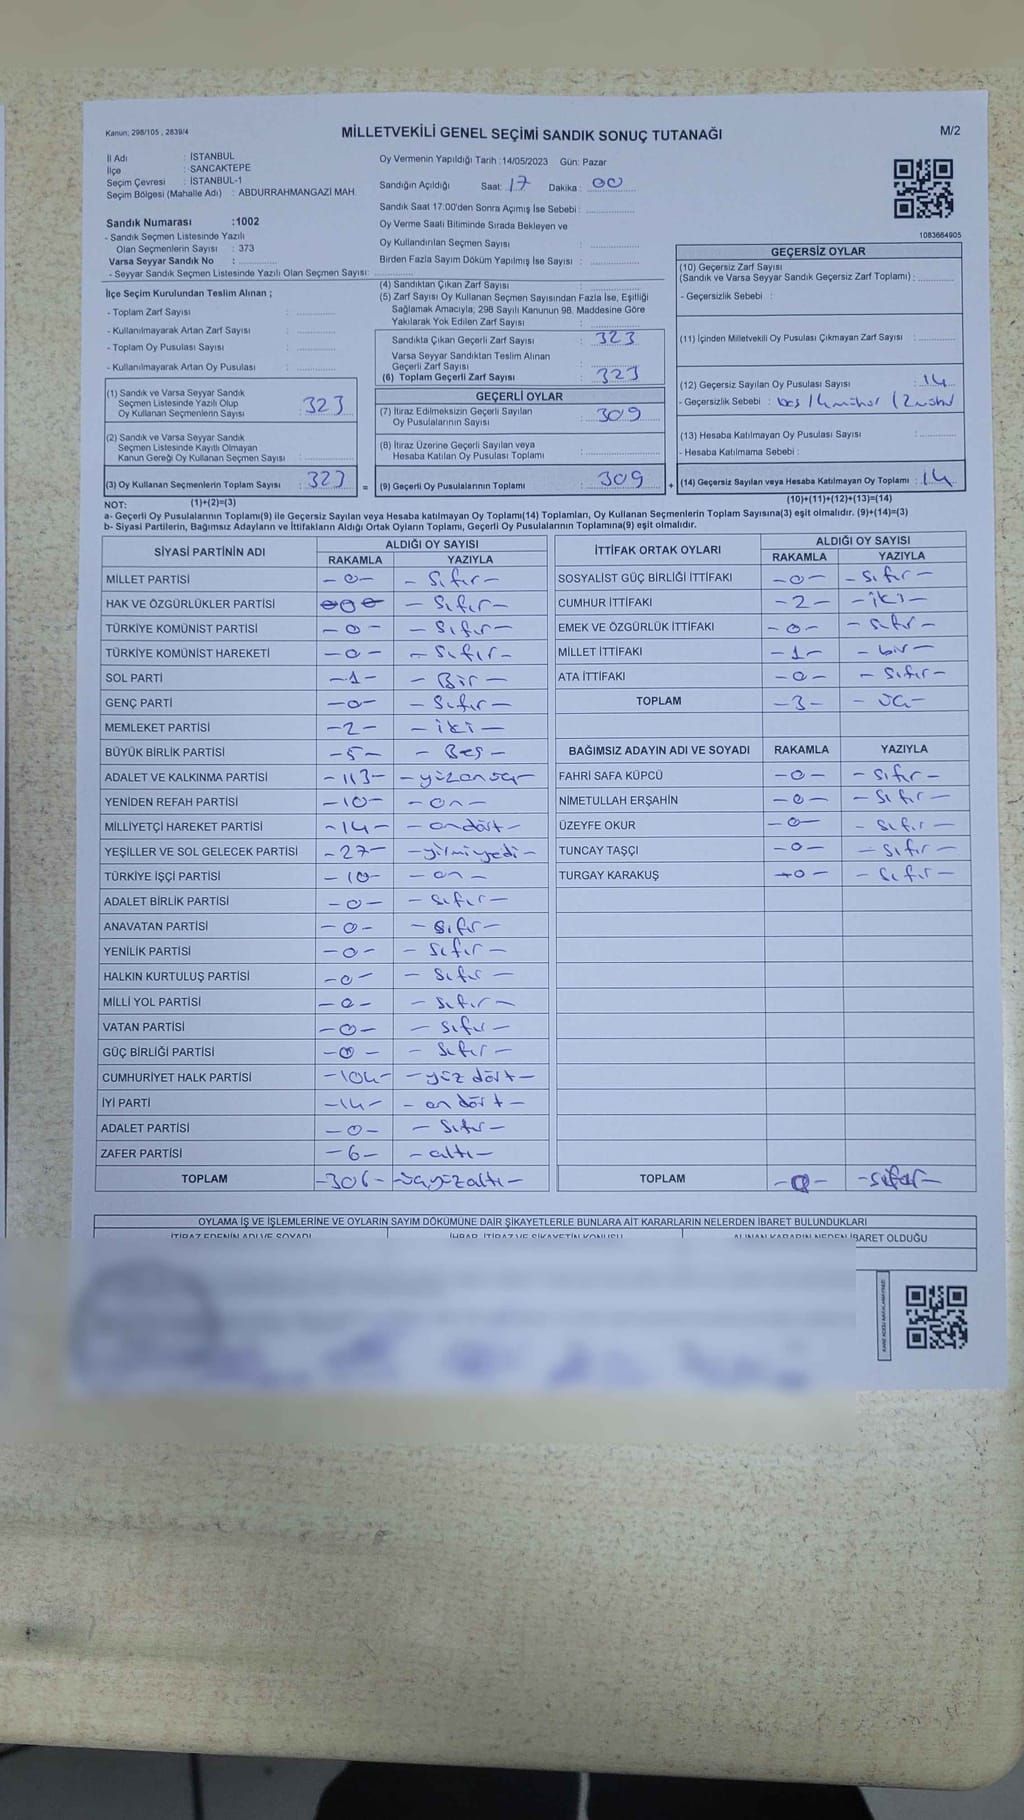 Kanun; 298/105 , 2839/4
MİLLETVEKİLİ GENEL SEÇİMİ SANDIK SONUÇ TUTANAĞI
M/2
İl Adı : İSTANBUL
İlçe : SANCAKTEPE
Seçim Çevresi : İSTANBUL-1
Seçim Bölgesi (Mahalle Adı) : ABDURRAHMANGAZİ MAH.
Sandık Numarası :1002
- Sandık Seçmen Listesinde Yazılı
Olan Seçmenlerin Sayısı : 373
Varsa Seyyar Sandık No :
- Seyyar Sandık Seçmen Listesinde Yazılı Olan Seçmen Sayısı:
Oy Vermenin Yapıldığı Tarih :14/05/2023 Gün: Pazar
Sandığın Açıldığı Saat: 17 Dakika : 00
Sandık Saat 17:00'den Sonra Açımış İse Sebebi :
Oy Verme Saati Bitiminde Sırada Bekleyen ve
Oy Kullandırılan Seçmen Sayısı :
Birden Fazla Sayım Döküm Yapılmış İse Sayısı :
1083664905
İlçe Seçim Kurulundan Teslim Alınan ;
- Toplam Zarf Sayısı :
- Kullanılmayarak Artan Zarf Sayısı :
- Toplam Oy Pusulası Sayısı :
- Kullanılmayarak Artan Oy Pusulası :
(1) Sandık ve Varsa Seyyar Sandık
Seçmen Listesinde Yazılı Olup
Oy Kullanan Seçmenlerin Sayısı : 323
(2) Sandık ve Varsa Seyyar Sandık
Seçmen Listesinde Kayıtlı Olmayan
Kanun Gereği Oy Kullanan Seçmen Sayısı :
(3) Oy Kullanan Seçmenlerin Toplam Sayısı : 323 =
(4) Sandıktan Çıkan Zarf Sayısı :
(5) Zarf Sayısı Oy Kullanan Seçmen Sayısından Fazla İse, Eşitliği
Sağlamak Amacıyla, 298 Sayılı Kanunun 98. Maddesine Göre
Yakılarak Yok Edilen Zarf Sayısı :
Sandıkta Çıkan Geçerli Zarf Sayısı : 323
Varsa Seyyar Sandıktan Teslim Alınan
Geçerli Zarf Sayısı :
(6) Toplam Geçerli Zarf Sayısı : 323
GEÇERLİ OYLAR
(7) İtiraz Edilmeksizin Geçerli Sayılan
Oy Pusulalarının Sayısı : 309
(8) İtiraz Üzerine Geçerli Sayılan veya
Hesaba Katılan Oy Pusulası Toplamı :
(9) Geçerli Oy Pusulalarının Toplamı : 309 +
GEÇERSİZ OYLAR
(10) Geçersiz Zarf Sayısı
(Sandık ve Varsa Seyyar Sandık Geçersiz Zarf Toplamı) :
- Geçersizlik Sebebi :
(11) İçinden Milletvekili Oy Pusulası Çıkmayan Zarf Sayısı :
(12) Geçersiz Sayılan Oy Pusulası Sayısı : 14
- Geçersizlik Sebebi :
(13) Hesaba Katılmayan Oy Pusulası Sayısı :
- Hesaba Katılmama Sebebi :
(14) Geçersiz Sayılan veya Hesaba Katılmayan Oy Toplamı : 14
NOT: (1)+(2)=(3) (10)+(11)+(12)+(13)=(14)
a- Geçerli Oy Pusulalarının Toplamı(9) ile Geçersiz Sayılan veya Hesaba katılmayan Oy Toplamı(14) Toplamları, Oy Kullanan Seçmenlerin Toplam Sayısına(3) eşit olmalıdır. (9)+(14)=(3)
b- Siyasi Partilerin, Bağımsız Adayların ve İttifakların Aldığı Ortak Oyların Toplamı, Geçerli Oy Pusulalarının Toplamına(9) eşit olmalıdır.
SİYASİ PARTİNİN ADI ALDIĞI OY SAYISI
RAKAMLA YAZIYLA
MİLLET PARTİSİ -0- -Sıfır-
HAK VE ÖZGÜRLÜKLER PARTİSİ 0 -Sıfır-
TÜRKİYE KOMÜNİST PARTİSİ -0- -Sıfır-
TÜRKİYE KOMÜNİST HAREKETİ -0- -Sıfır-
SOL PARTİ -1- -Bir-
GENÇ PARTİ -0- -Sıfır-
MEMLEKET PARTİSİ -2- -iki-
BÜYÜK BİRLİK PARTİSİ -5- -Beş-
ADALET VE KALKINMA PARTİSİ -113-
YENİDEN REFAH PARTİSİ -10- -on-
MİLLİYETÇİ HAREKET PARTİSİ -14- -ondört-
YEŞİLLER VE SOL GELECEK PARTİSİ -27- -yirmiyedi-
TÜRKİYE İŞÇİ PARTİSİ -10- -on-
ADALET BİRLİK PARTİSİ -0- -Sıfır-
ANAVATAN PARTİSİ -0- -Sıfır-
YENİLİK PARTİSİ -0- -Sıfır-
HALKIN KURTULUŞ PARTİSİ -0- -Sıfır-
MİLLİ YOL PARTİSİ -0- -Sıfır-
VATAN PARTİSİ -0- -Sıfır-
GÜÇ BİRLİĞİ PARTİSİ -0- -Sıfır-
CUMHURİYET HALK PARTİSİ -104- -yüz dört-
İYİ PARTİ -14- -on dört-
ADALET PARTİSİ -0- -Sıfır-
ZAFER PARTİSİ -6- -altı-
TOPLAM -306- -üçyüzaltı-
İTTİFAK ORTAK OYLARI ALDIĞI OY SAYISI
RAKAMLA YAZIYLA
SOSYALİST GÜÇ BİRLİĞİ İTTİFAKI -0- -Sıfır-
CUMHUR İTTİFAKI -2- -iki-
EMEK VE ÖZGÜRLÜK İTTİFAKI -0- -Sıfır-
MİLLET İTTİFAKI -1- -bir-
ATA İTTİFAKI -0- -Sıfır-
TOPLAM -3- -üç-
BAĞIMSIZ ADAYIN ADI VE SOYADI RAKAMLA YAZIYLA
FAHRİ SAFA KÜPCÜ -0- -Sıfır-
NİMETULLAH ERŞAHİN -0- -Sıfır-
ÜZEYFE OKUR -0- -Sıfır-
TUNCAY TAŞÇI -0- -Sıfır-
TURGAY KARAKUŞ -0- -Sıfır-
TOPLAM -0- -sıfır-
OYLAMA İŞ VE İŞLEMLERİNE VE OYLARIN SAYIM DÖKÜMÜNE DAİR ŞİKAYETLERLE BUNLARA AİT KARARLARIN NELERDEN İBARET BULUNDUKLARI
İTİRAZ EDENİN ADI VE SOYADI İHBAR, İTİRAZ VE ŞİKAYETİN KONUSU ALINAN KARARIN NEDEN İBARET OLDUĞU